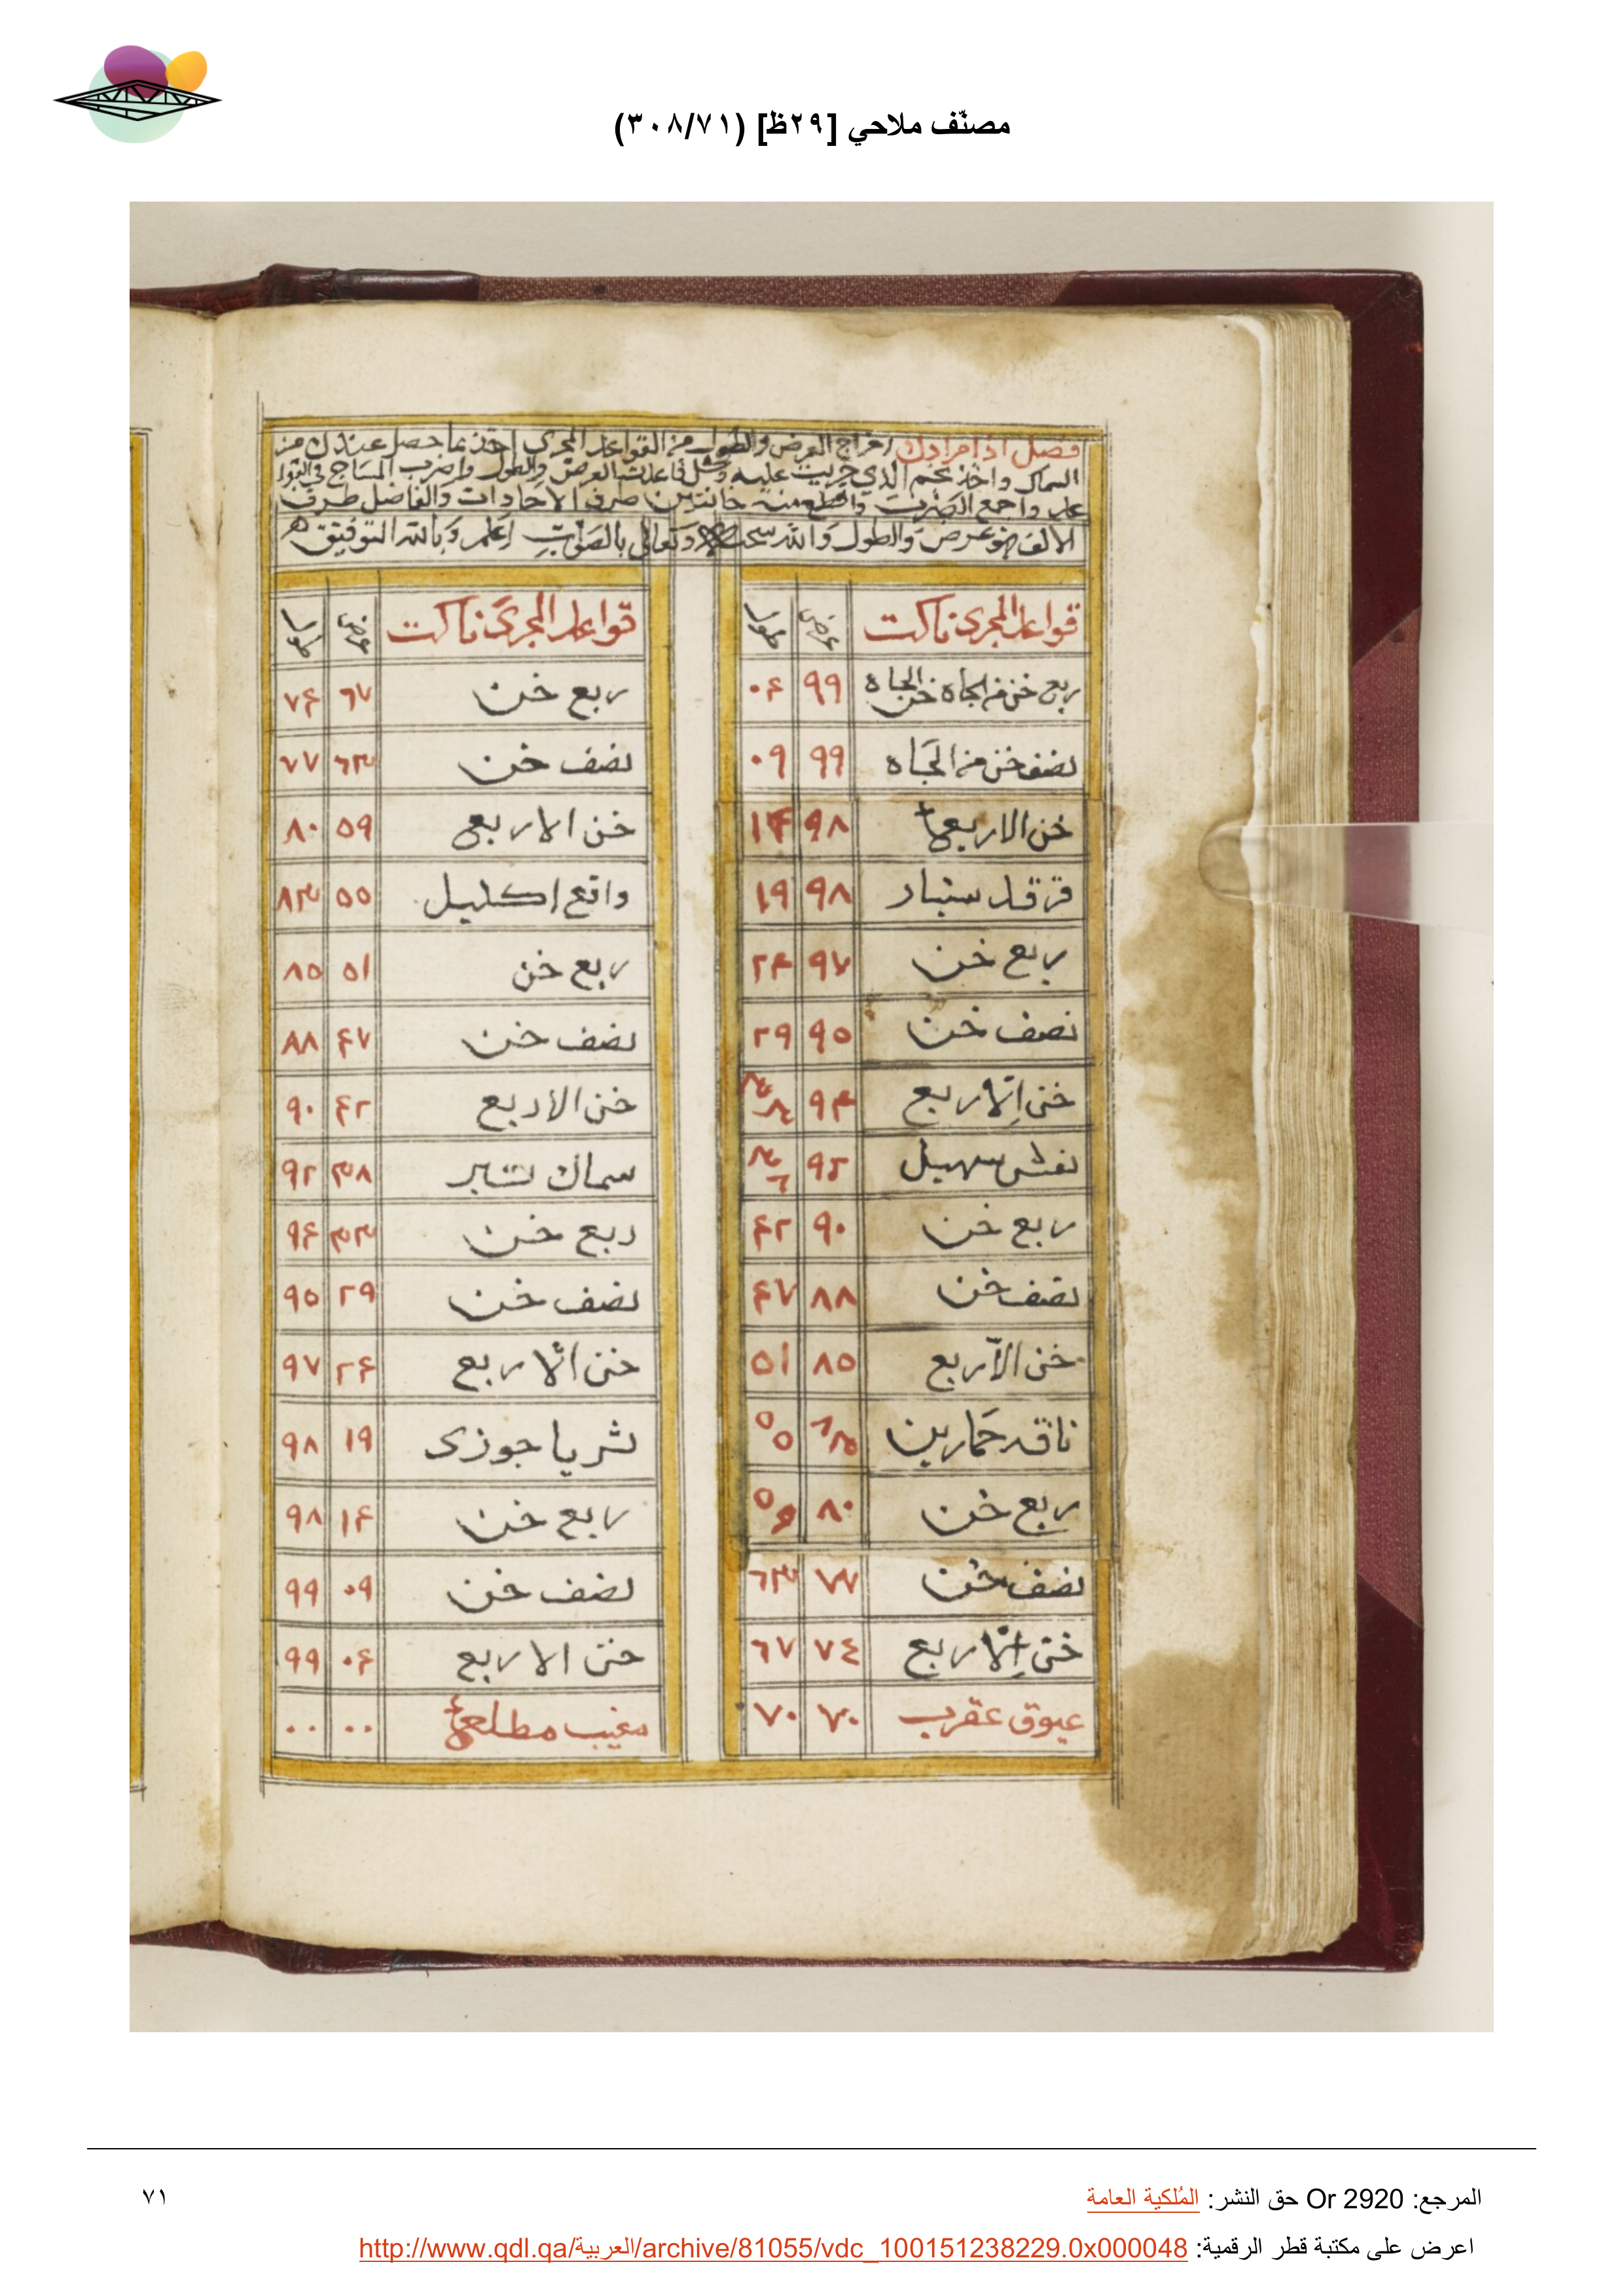 مصنّف ملاحي [٢٩ظ] (٣٠٨/٧١)
فصل اذا مرادك اخراج العرض والطول من القواعد المجرى احفذ ما حصل عندك من
السماك واخذ نجم الذي جريت عليه وشل قاعدت العرض والطول واضرب المساج في القوا
عد واجمع الضرب واقطع منه خانتين صرف الاحادات والفاضل طرف
الالف هو عرض والطول والله سبحانه وتعالى بالصواب اعلم وبالله التوفيق
قواعد المجرى ناكت عرض طول
ربع خن من الجاه خن الجاه ٩٩ ٠۴
نصف خن من الجاه ٩٩ ٠٩
خن الا ربع ٩٨ ١۴
فرقد سنبار ٩٨ ١٩
ربع خن ٩٧ ٢۴
نصف خن ٩٥ ٢٩
خن الا ربع ٩۴ ٣٣
نعش سهيل ٩٢ ٣٨
ربع خن ٩٠ ۴٢
نصف خن ٨٨ ۴٧
خن الا ربع ٨٥ ٥١
ناقه حمارين ٨٣ ٥٥
ربع خن ٨٠ ٥٩
نصف خن ٧٧ ٦٣
خن الا ربع ٧٤ ٦٧
عيوق عقرب ٧٠ ٧٠
قواعد المجرى ناكت عرض طول
ربع خن ٦٧ ٧۴
نصف خن ٦٣ ٧٧
خن الا ربع ٥٩ ٨٠
واقع اكليل ٥٥ ٨٣
ربع خن ٥١ ٨٥
نصف خن ۴٧ ٨٨
خن الا ربع ۴٢ ٩٠
سماك تير ٣٨ ٩٢
ربع خن ٣٣ ٩۴
نصف خن ٢٩ ٩٥
خن الا ربع ٢۴ ٩٧
ثريا جوزى ١٩ ٩٨
ربع خن ١۴ ٩٨
نصف خن ٠٩ ٩٩
خن الا ربع ٠۴ ٩٩
مغيب مطلعي ٠٠ ٠٠
المرجع: Or 2920 حق النشر: المُلكية العامة
٧١
اعرض على مكتبة قطر الرقمية: http://www.qdl.qa/العربية/archive/81055/vdc_100151238229.0x000048